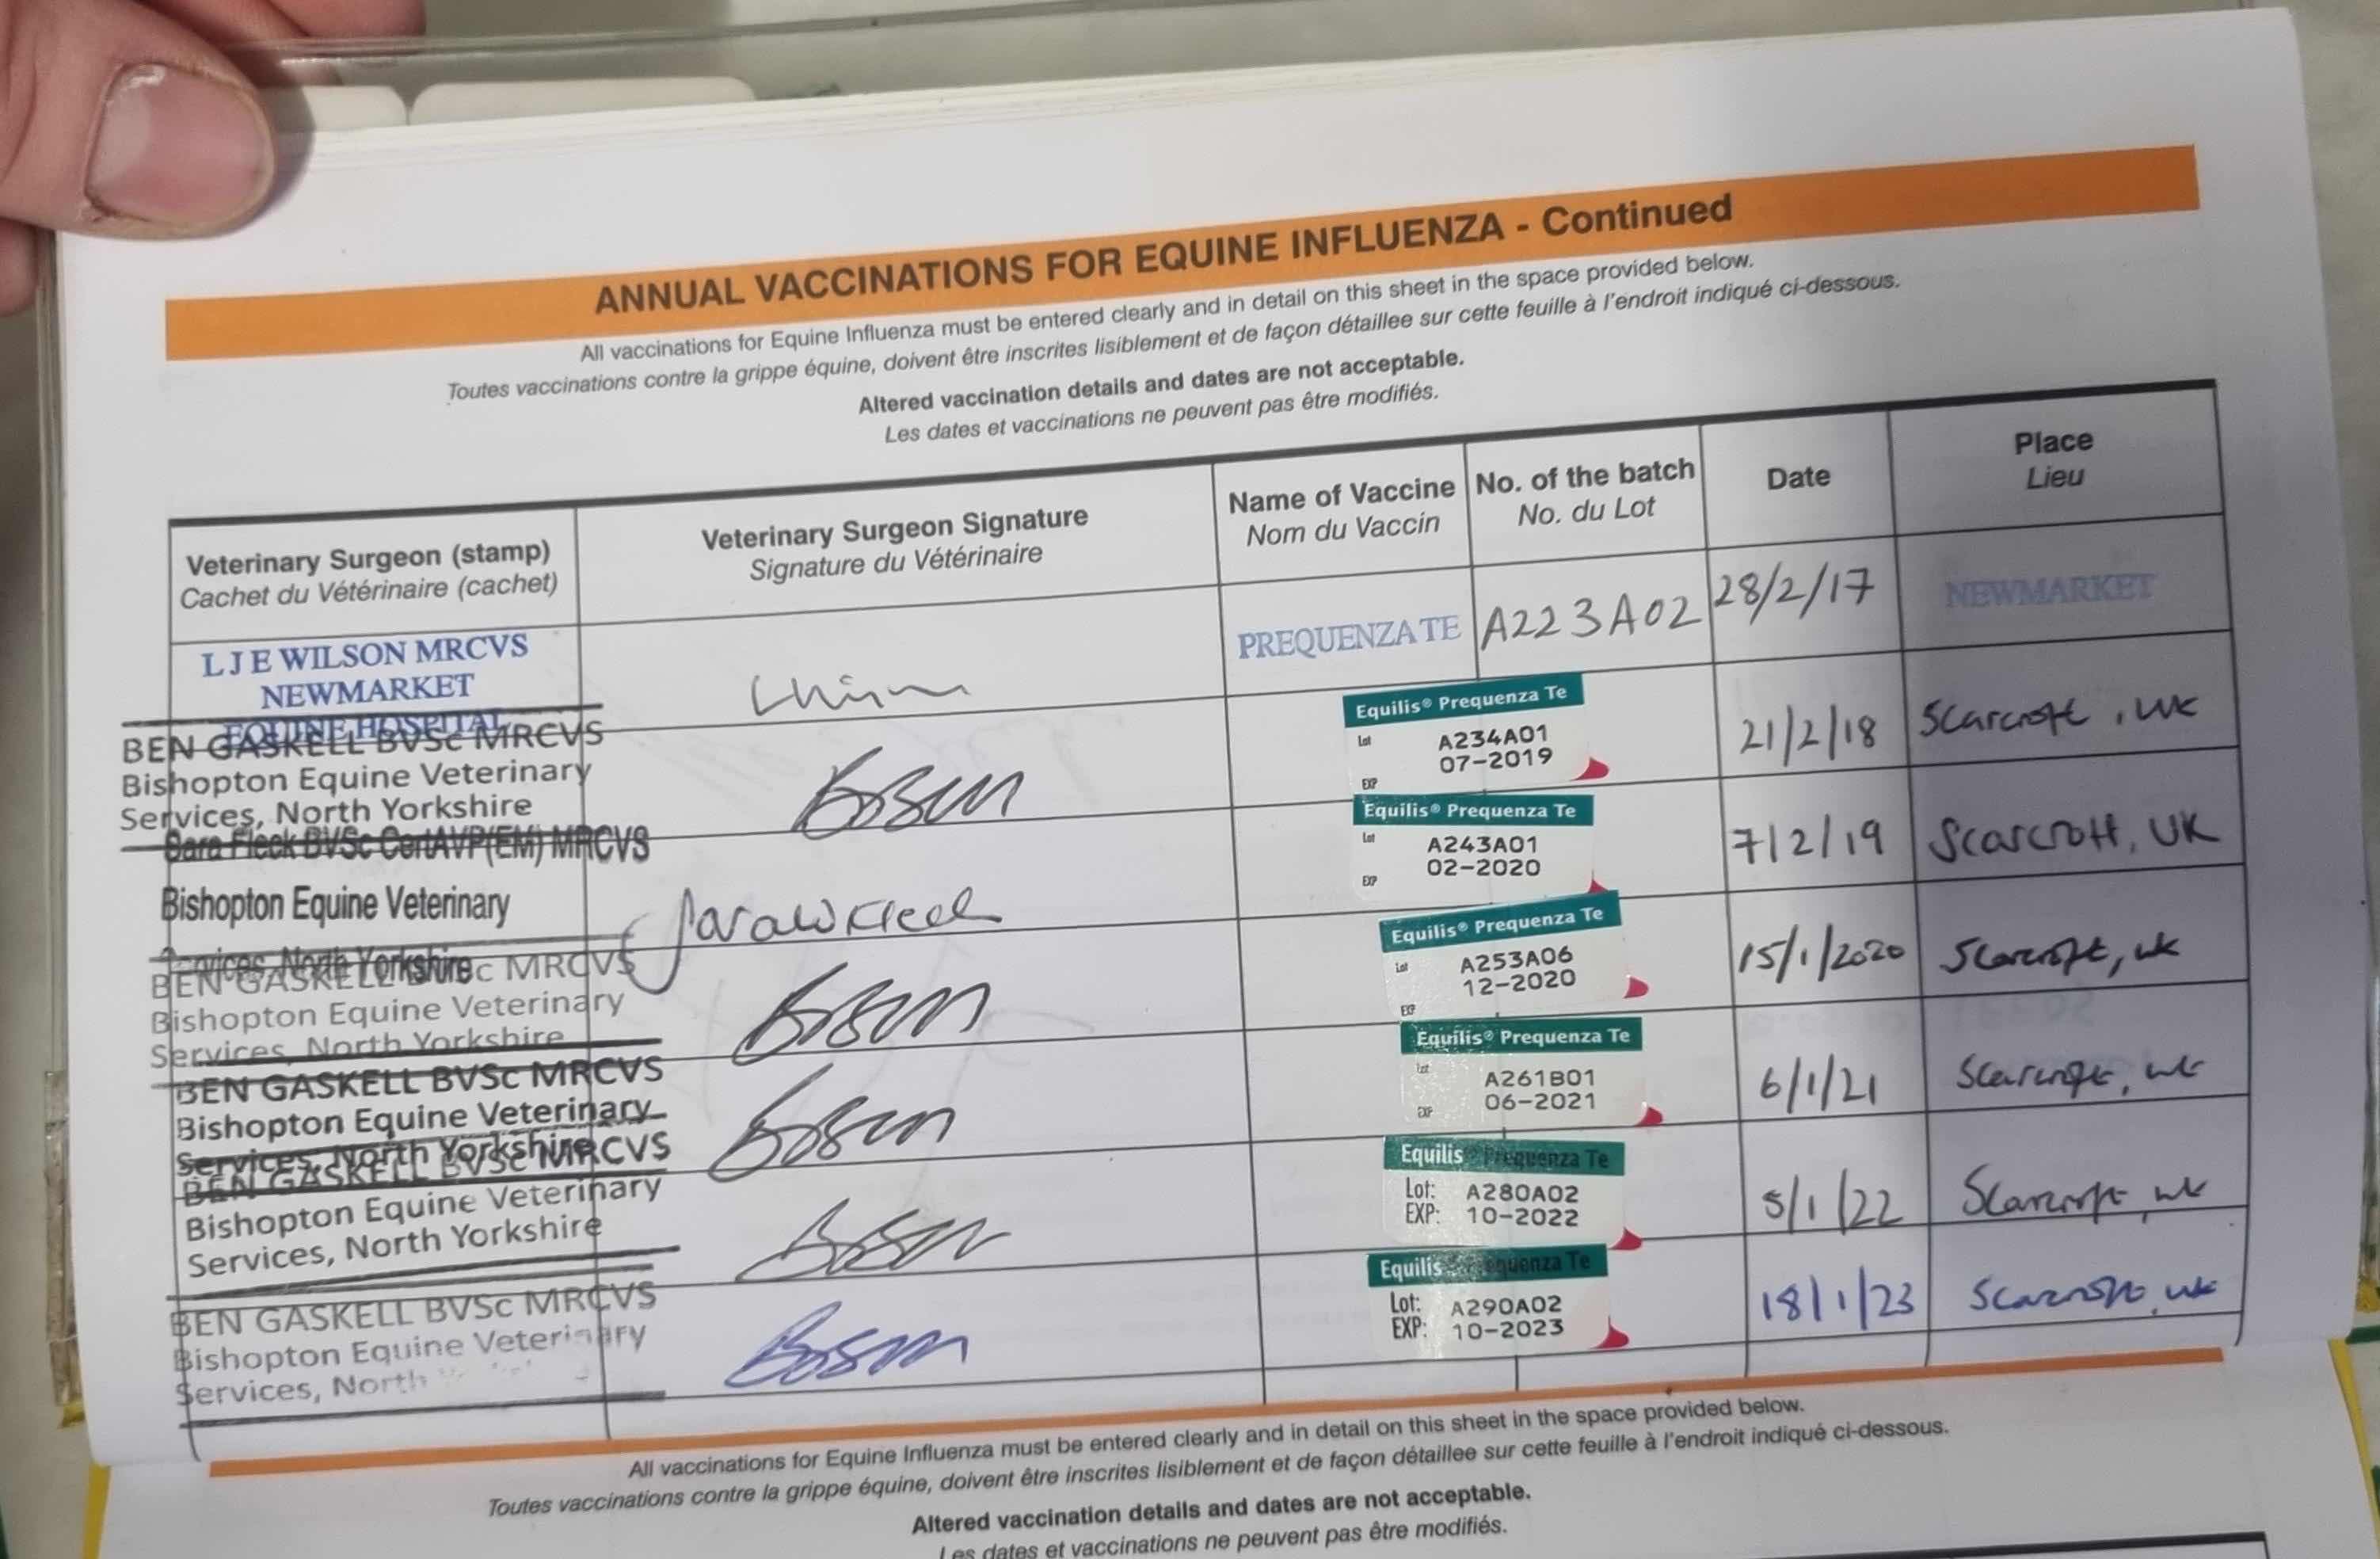 ANNUAL VACCINATIONS FOR EQUINE INFLUENZA - Continued
All vaccinations for Equine Influenza must be entered clearly and in detail on this sheet in the space provided below.
Toutes vaccinations contre la grippe équine, doivent être inscrites lisiblement et de façon détaillee sur cette feuille à l'endroit indiqué ci-dessous.
Altered vaccination details and dates are not acceptable.
Les dates et vaccinations ne peuvent pas être modifiés.
Veterinary Surgeon (stamp)
Cachet du Vétérinaire (cachet)
Veterinary Surgeon Signature
Signature du Vétérinaire
Name of Vaccine
Nom du Vaccin
No. of the batch
No. du Lot
Date
Place
Lieu
L J E WILSON MRCVS
NEWMARKET
EQUINE HOSPITAL
PREQUENZA TE
A223A02
28/2/17
NEWMARKET
BEN GASKELL BVSc MRCVS
Bishopton Equine Veterinary
Services, North Yorkshire
Equilis® Prequenza Te
Lot A234A01
EXP 07-2019
21/2/18
Scarcroft, UK
Sara Fleck BVSc CertAVP(EM) MRCVS
Bishopton Equine Veterinary
Services, North Yorkshire
Equilis® Prequenza Te
Lot A243A01
EXP 02-2020
7/2/19
Scarcroft, UK
BEN GASKELL BVSc MRCVS
Bishopton Equine Veterinary
Services, North Yorkshire
Equilis® Prequenza Te
Lot A253A06
EXP 12-2020
15/1/2020
Scarcroft, UK
BEN GASKELL BVSc MRCVS
Bishopton Equine Veterinary
Services, North Yorkshire
Equilis® Prequenza Te
Lot A261B01
EXP 06-2021
6/1/21
Scarcroft, UK
BEN GASKELL BVSc MRCVS
Bishopton Equine Veterinary
Services, North Yorkshire
Equilis® Prequenza Te
Lot: A280A02
EXP: 10-2022
5/1/22
Scarcroft, UK
BEN GASKELL BVSc MRCVS
Bishopton Equine Veterinary
Services, North
Equilis Prequenza Te
Lot: A290A02
EXP: 10-2023
18/1/23
Scarcroft, UK
All vaccinations for Equine Influenza must be entered clearly and in detail on this sheet in the space provided below.
Toutes vaccinations contre la grippe équine, doivent être inscrites lisiblement et de façon détaillee sur cette feuille à l'endroit indiqué ci-dessous.
Altered vaccination details and dates are not acceptable.
Les dates et vaccinations ne peuvent pas être modifiés.